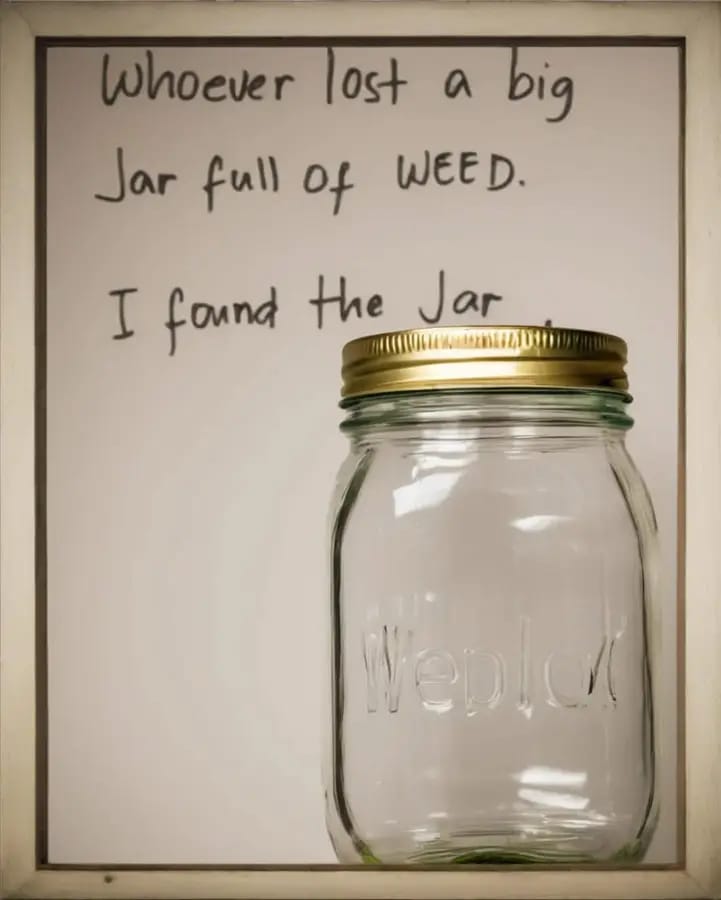 Whoever lost a big
Jar full of WEED.
I found the Jar.